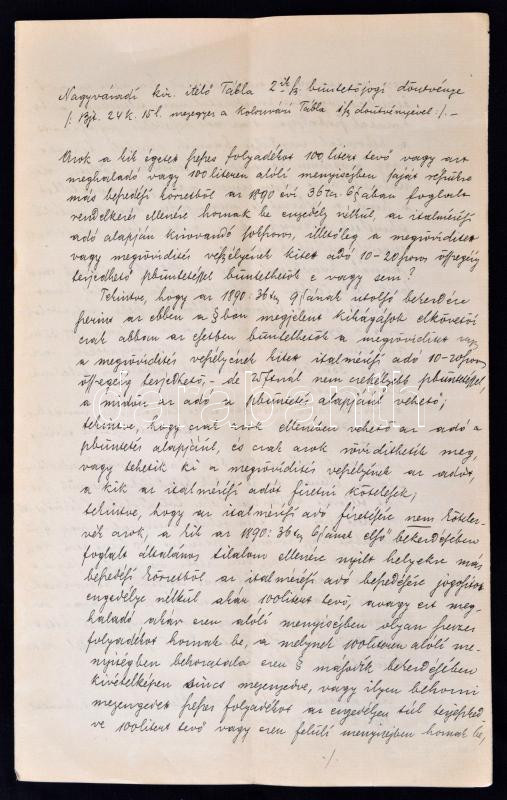 Nagyváradi kir. itélő Tábla 2 ik sz. büntetőjogi döntvénye
/: Bjt. 24 k. 15 l. megegyez a Kolozsvári Tábla 1 sz döntvényével :/ -
Azok a kik égetett szeszes folyadékot 100 litert tevő vagy azt
meghaladó vagy 100 literen alóli mennyiségben saját részükre
más beszedési körzetből az 1890 évi 36 tcz 6 §ában foglalt
rendelkezés ellenére hoznak be engedély nélkül, az italmérési
adó alapján kiszabandó sokszoros, illetőleg a megrövidített
vagy megrövidítés veszélyének kitett adó 10-20szoros összegéig
terjedhető pbüntetéssel büntethetők e vagy sem?
Tekintve, hogy az 1890:36 tcz 9 §ának utolsó bekezdése
szerint az ebben a §ban megjelent kihágásost elkövetői
csak abban az esetben büntethetők a megrövidített vagy
a megrövidítés veszélyének kitett italmérési adó 10-20szoros
összegéig terjedhető, - de 20 frtnál nem csekélyebb pbüntetéssel,
a midőn az adó a pbüntetés alapjául vehető;
tekintve, hogy csak azok ellenében vehető az adó a
pbüntetés alapjául, és csak azok rövidíthetik meg,
vagy tehetik ki a megrövidítés veszélyének az adót,
a kik az italmérési adót fizetni kötelesek;
tekintve, hogy az italmérési adó fizetésére nem kötelez-
vék azok, a kik az 1890:36 tcz 6 §ának első bekezdésében
foglalt általános tilalom ellenére nyílt helyekre más
beszedési körzetből az italmérési adó beszedésére jogosított
engedélye nélkül akár 100 litert tevő, avagy ezt meg-
haladó akár ezen alóli mennyiségben olyan szeszes
folyadékot hoznak be, a melynek 100 literen alóli me-
nyiségben behozatala ezen § második bekezdésében
kivételképen sincs megengedve, vagy ilyen behozni
megengedett szeszes folyadékot az engedélyen túl terjesked-
ve 100 litert tevő vagy ezen felüli menyiségben hoznak be,
./.
darabanth